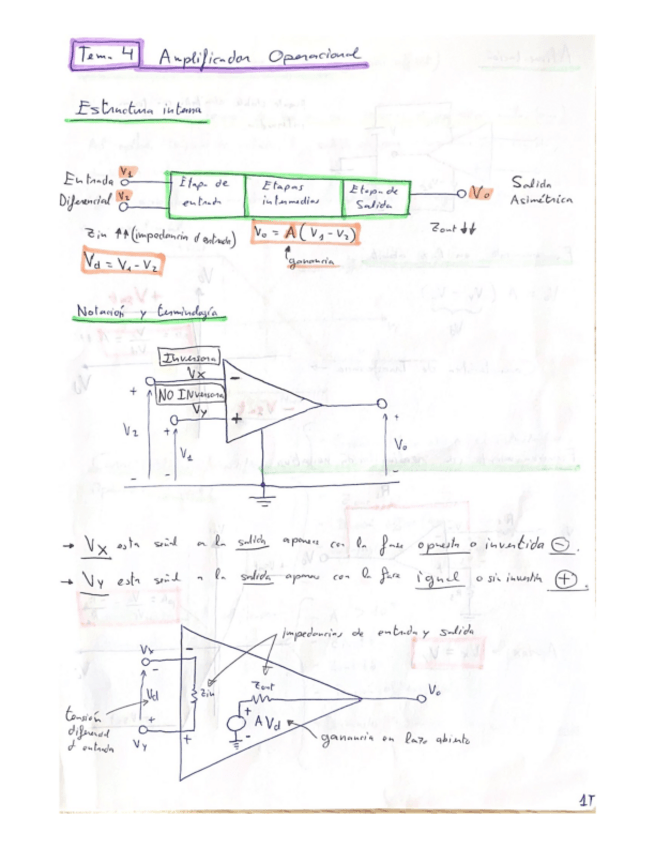 Tema 4 Amplificador Operacional
Estructura interna
Entrada Diferencial
V1
V2
Etapa de entrada
Etapas intermedias
Etapa de Salida
Vo
Salida Asimétrica
Zin ↑↑ (impedancia d entrada)
Vo = A (V1 - V2)
Zout ↓↓
ganancia
Vd = V1 - V2
Notación y terminología
Inversora
Vx
-
NO INVersora
Vy
+
+
V2
-
+
V1
-
+
Vo
-
→ Vx esta señal a la salida aparece con la fase opuesta o invertida ⊖.
→ Vy esta señal a la salida aparece con la fase igual o sin invertir ⊕.
impedancias de entrada y salida
Vx
-
-
Vd
Zin
Zout
Vo
+
A Vd
-
+
Vy
+
tensión diferencial d entrada
ganancia en lazo abierto
1T